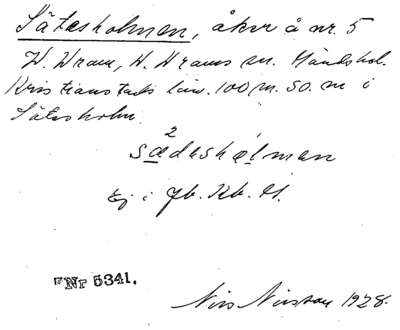 Sätesholmen, åker å nr. 5
V. Vram, V. Vrams sn. Gärds hd.
Kristianstads län. 100 m. 50. m i
Sätesholm.
2
sädeshålman
Ej i Jb. Kb. U.
Nr 5341.
Nils Nilsson 1928.